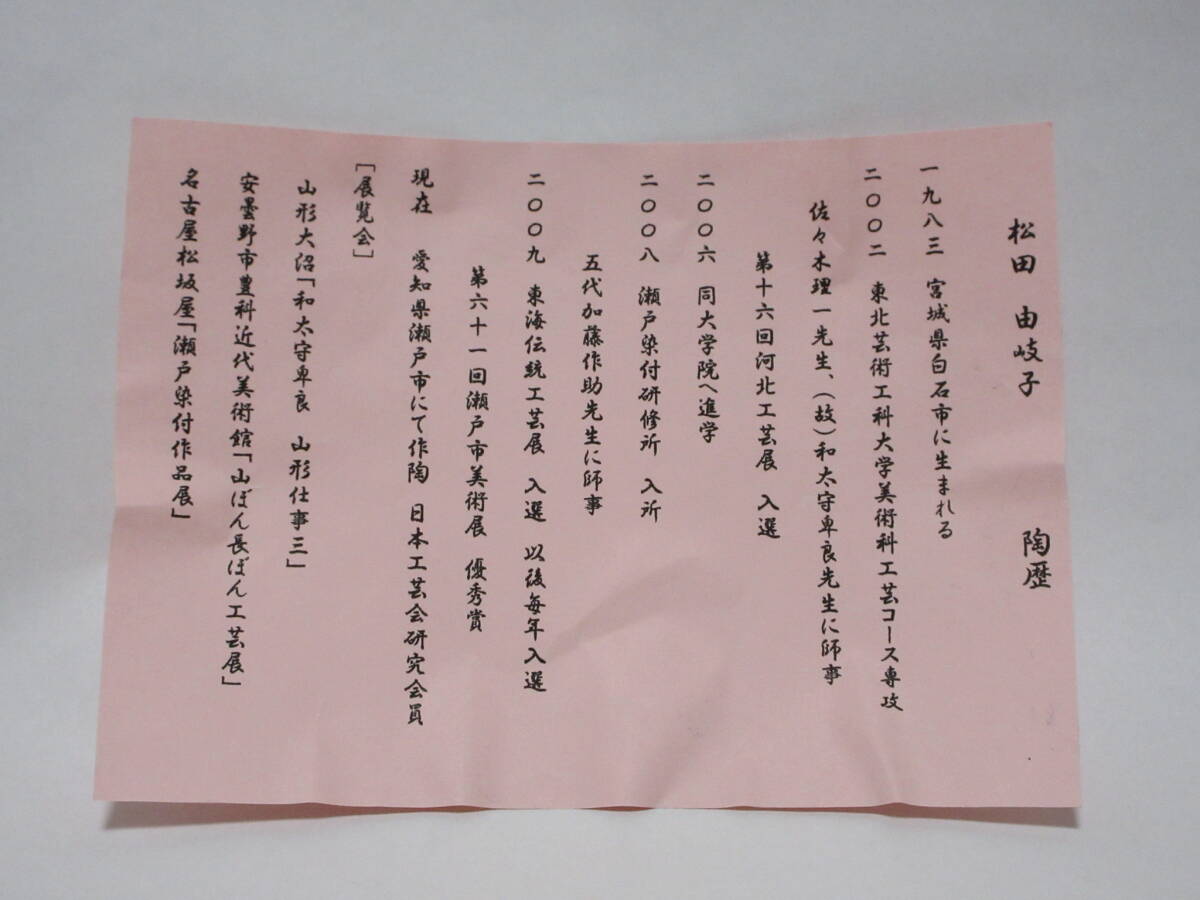 松田 由岐子 陶歴
一九八三 宮城県白石市に生まれる
二〇〇二 東北芸術工科大学美術科工芸コース専攻
佐々木理一先生、(故)和太守卑良先生に師事
第十六回河北工芸展 入選
二〇〇六 同大学院へ進学
二〇〇八 瀬戸染付研修所 入所
五代加藤作助先生に師事
二〇〇九 東海伝統工芸展 入選 以後毎年入選
第六十一回瀬戸市美術展 優秀賞
現在 愛知県瀬戸市にて作陶 日本工芸会研究会員
[展覧会]
山形大沼「和太守卑良 山形仕事三」
安曇野市豊科近代美術館「山ぼん長ぼん工芸展」
名古屋松坂屋「瀬戸染付作品展」